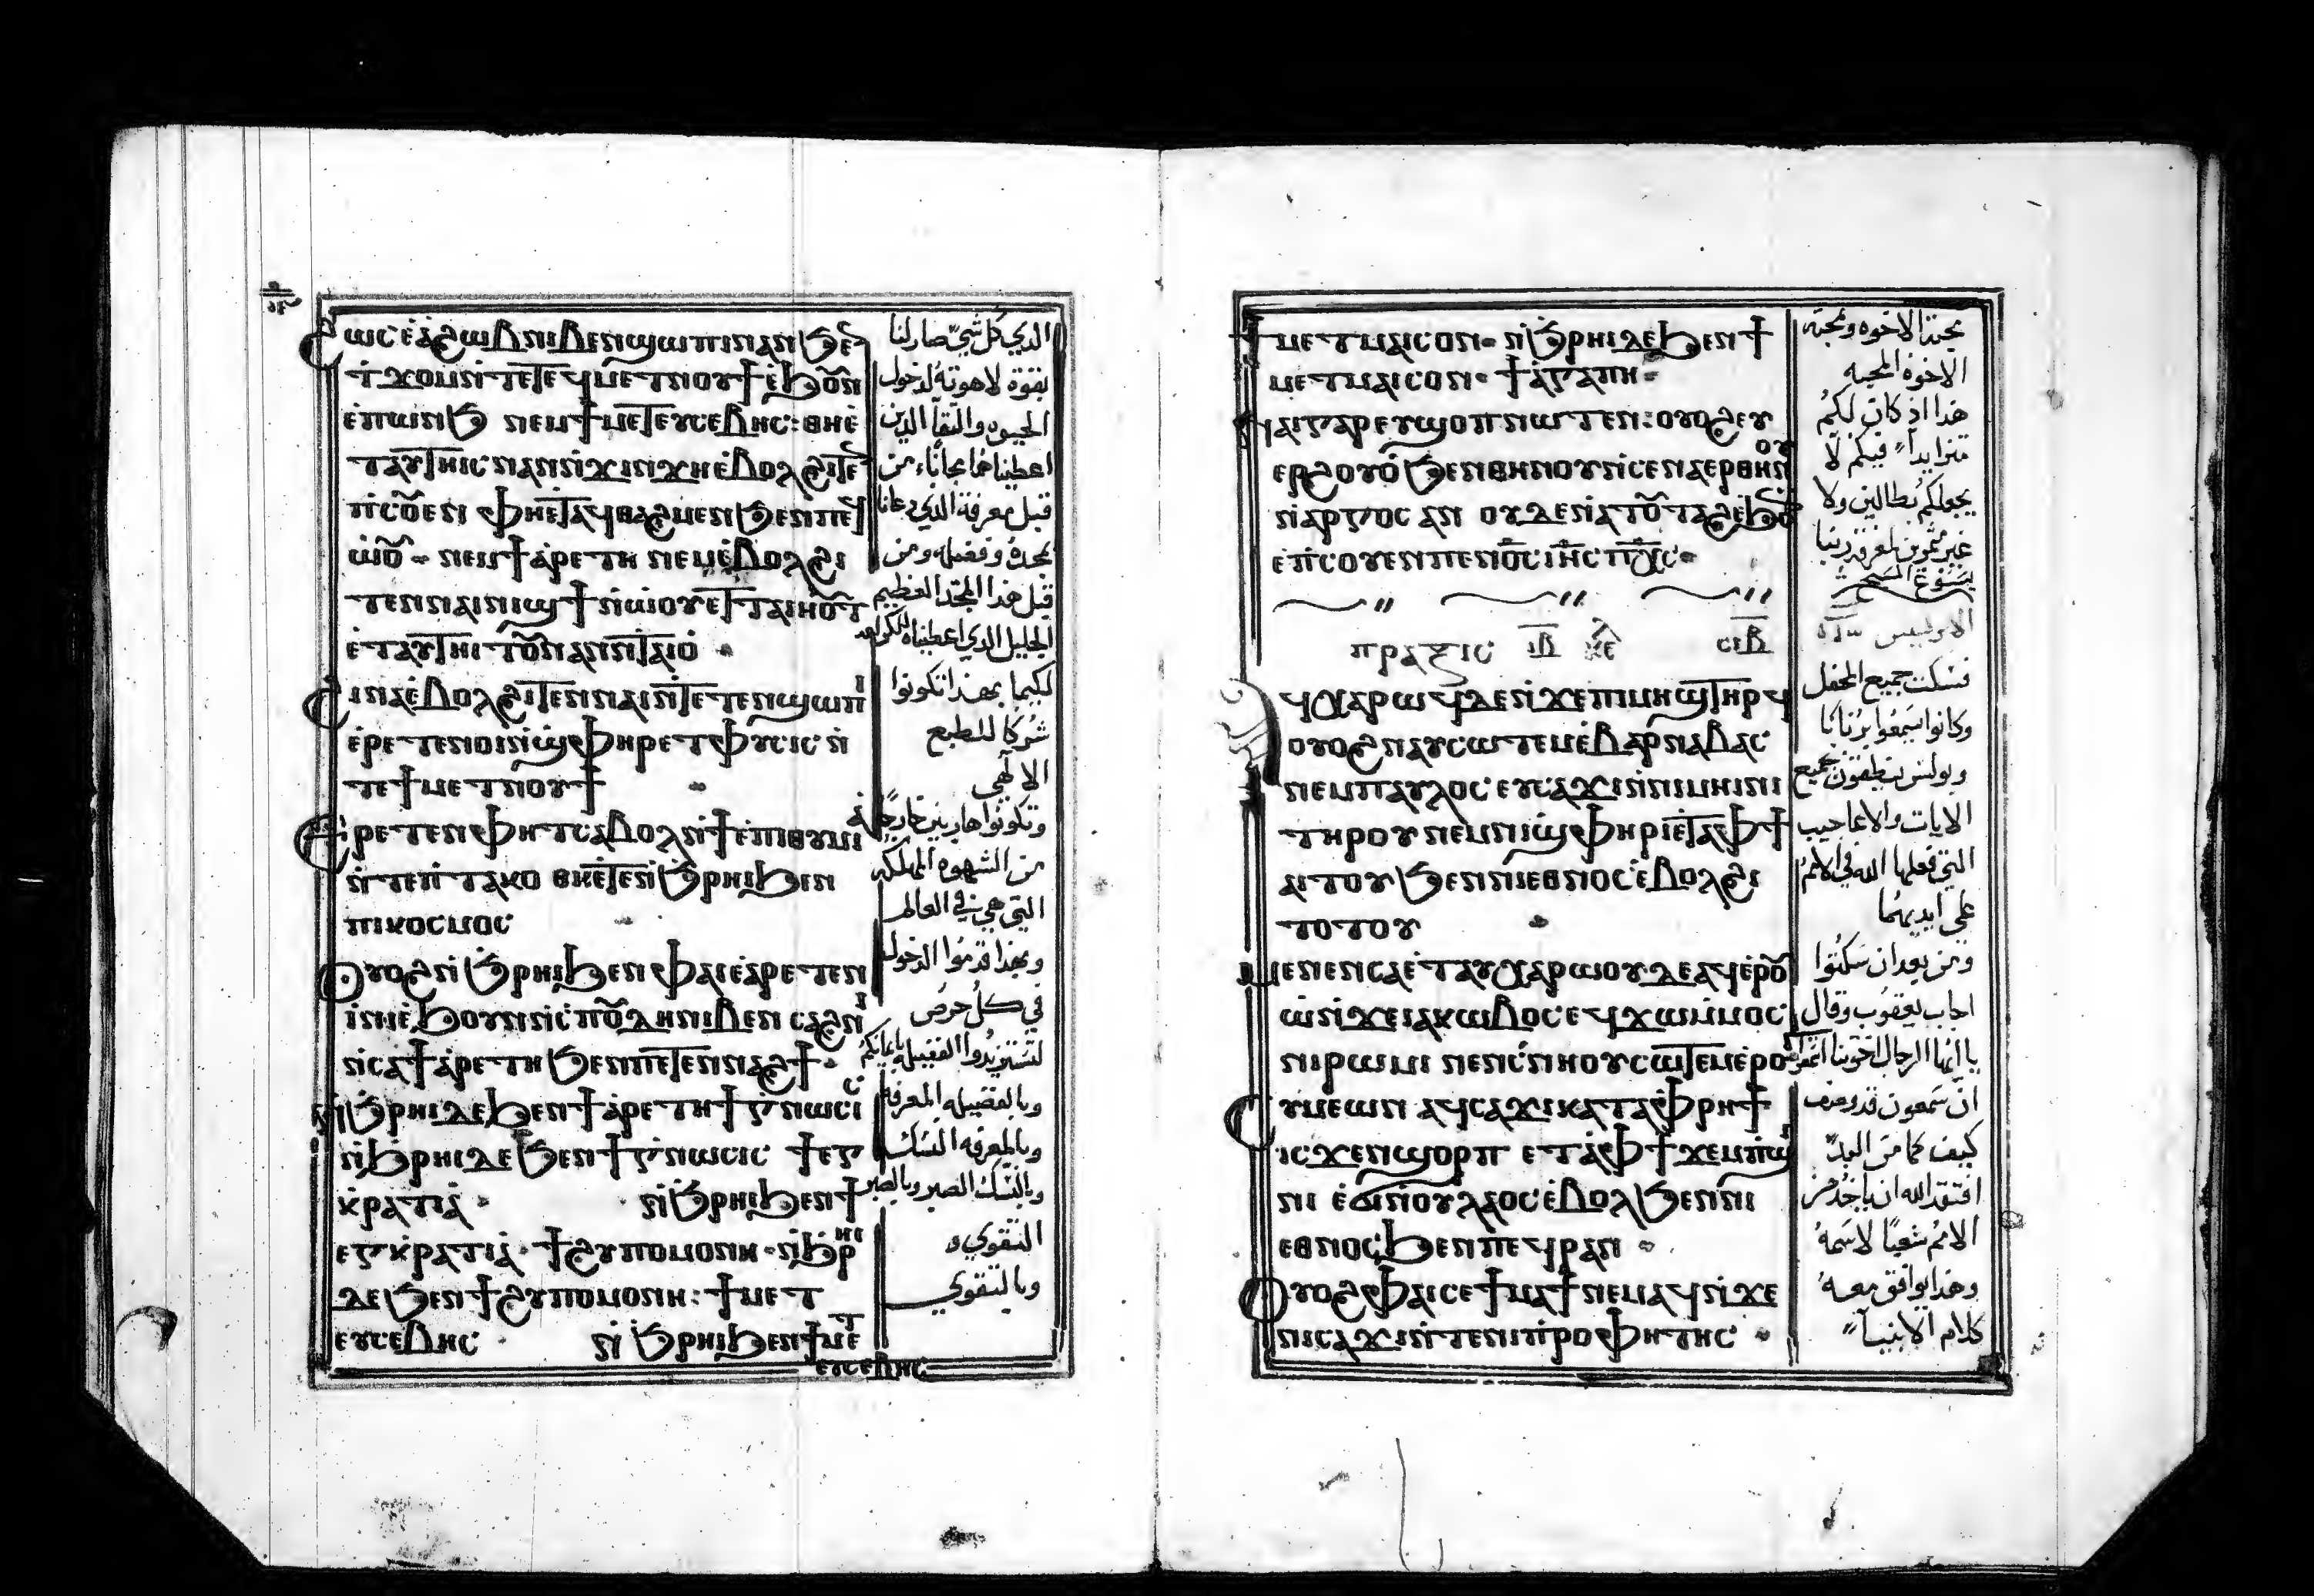 ϩⲱⲥ ⲉ̀ⲁϩⲱⲃ ⲛⲓⲃⲉⲛ ϣⲱⲡⲓ ⲛⲁⲛ ϧⲉ
ⲧϫⲟⲙ ⲛ̀ⲧⲉ ⲧⲉϥⲙⲉⲧⲛⲟⲩϯ ⲉ̀ϧⲟⲩⲛ
ⲉ̀ⲡⲱⲛϧ ⲛⲉⲙ ϯⲙⲉⲧⲉⲩⲥⲉⲃⲏⲥ: ⲑⲏⲉ̀
ⲧⲁⲩⲧⲏⲓⲥ ⲛⲁⲛ ⲛ̀ϫⲓⲛϫⲏ ⲉ̀ⲃⲟⲗ ϩⲓⲧⲉ
ⲡ̀ⲥⲟⲩⲉⲛ ⲫⲏⲉⲧⲁϥⲑⲁϩⲙⲉⲛ ϧⲉⲛ ⲡⲉϥ
ⲱ̀ⲟⲩ ⲛⲉⲙ ϯⲁ̀ⲣⲉⲧⲏ ⲛⲉⲙ ⲉ̀ⲃⲟⲗ ϩⲓ
ⲧⲉⲛ ⲛⲁⲓⲛⲓϣϯ ⲛ̀ⲱ̀ⲟⲩ ⲉⲧⲧⲁⲓⲏⲟⲩⲧ
ⲉ̀ⲧⲁⲩⲧⲏⲓⲧⲟⲩ ⲛⲁⲛ ⲛ̀ⲧⲁⲓⲟ̀
ϩⲓⲛⲁ ⲉ̀ⲃⲟⲗ ϩⲓⲧⲉⲛ ⲛⲁⲓ ⲛ̀ⲧⲉⲧⲉⲛϣⲱⲡⲓ
ⲉ̀ⲣⲉⲧⲉⲛⲟⲓ ⲛ̀ϣ̀ⲫⲏⲣ ⲉⲧⲫⲩⲥⲓⲥ ⲛ̀
ⲧⲉ ϯⲙⲉⲧⲛⲟⲩϯ
ⲉⲣⲉⲧⲉⲛⲫⲏⲧ ⲥⲁⲃⲟⲗ ⲛ̀ϯⲉ̀ⲡⲓⲑⲩⲙⲓⲁ
ⲛ̀ⲧⲉ ⲡ̀ⲧⲁⲕⲟ ⲑⲏⲉⲧⲉⲛ̀ϧⲣⲏⲓ ϧⲉⲛ
ⲡⲓⲕⲟⲥⲙⲟⲥ
ⲟⲩⲟϩ ⲛ̀ϧⲣⲏⲓ ϧⲉⲛ ⲫⲁⲓ ⲉ̀ⲁⲣⲉⲧⲉⲛ
ⲓ̀ⲛⲓ ⲉ̀ϧⲟⲩⲛ ⲛ̀ⲥⲡⲟⲩⲇⲏ ⲛⲓⲃⲉⲛ ⲥⲁϩⲛⲓ
ⲛ̀ⲥⲁ ϯⲁ̀ⲣⲉⲧⲏ ϧⲉⲛ ⲡⲉⲧⲉⲛⲛⲁϩϯ
ⲛ̀ϧⲣⲏⲓ ⲇⲉ ϧⲉⲛ ϯⲁ̀ⲣⲉⲧⲏ ϯⲅⲛⲱⲥⲓⲥ
ⲛ̀ϧⲣⲏⲓ ⲇⲉ ϧⲉⲛ ϯⲅ̀ⲛⲱⲥⲓⲥ ϯⲉⲅ
ⲕ̀ⲣⲁⲧⲓⲁ̀ ⲛ̀ϧⲣⲏⲓ ϧⲉⲛ ϯ
ⲉⲅⲕ̀ⲣⲁⲧⲓⲁ̀ ϯϩⲩⲡⲟⲙⲟⲛⲏ ⲛ̀ϧⲣⲏⲓ
ⲇⲉ ϧⲉⲛ ϯϩⲩⲡⲟⲙⲟⲛⲏ: ϯⲙⲉⲧ
ⲉⲩⲥⲉⲃⲏⲥ ⲛ̀ϧⲣⲏⲓ ϧⲉⲛ ϯⲙⲉⲧ
ⲉⲩⲥⲉⲃⲏⲥ
الدي كل شي صار لنا
بقوة لاهوته لدخول
الحيوه والتقا الدين
اعطيناهما مجانا من
قبل معرفة الدي دعانا
بمجده وفضيله ومن
قبل هدا المجد العظيم
الجليل الدي اعطيناه
لكيما بهدا تكونوا
شركا للطبع
الالهي
وتكونوا هاربين خارجا
من الشهوه المهلكه
التي هي في العالم
وبهدا قدموا الدخول
في كل حرص
لتستزيدوا الفضيله بايمانكم
وبالفضيله المعرفه
وبالمعرفه النسك
وبالنسك الصبر وبالصبر
التقوي
وبالتقوي
ϯⲙⲉⲧⲙⲁⲓⲥⲟⲛ ⲛ̀ϧⲣⲏⲓ ⲇⲉ ϧⲉⲛ ϯ
ⲙⲉⲧⲙⲁⲓⲥⲟⲛ ϯⲁ̀ⲅⲁⲡⲏ
ⲛⲁⲓ ⲅⲁⲣ ⲉⲩϣⲟⲡ ⲛⲱⲧⲉⲛ: ⲟⲩⲟϩ ⲉⲩ
ⲉⲣϩⲟⲩⲟ̀ ϧⲉⲛ ⲑⲏⲛⲟⲩ ⲛ̀ⲥⲉⲛⲁⲉⲣ ⲑⲏⲛⲟⲩ
ⲛ̀ⲁⲣⲅⲟⲥ ⲁⲛ ⲟⲩⲇⲉ ⲛ̀ⲁⲧⲟⲩⲧⲁϩ ⲉ̀ϧⲟⲩⲛ
ⲉ̀ⲡ̀ⲥⲟⲩⲉⲛ ⲡⲉⲛⲟ̅ⲥ̅ ⲓⲏ̅ⲥ̅ ⲡ̅ⲭ̅ⲥ̅
ⲡⲣⲁⲝⲓⲥ ⲓ̅ⲃ̅ ⲕⲉ ⲥⲓ̅ⲃ̅
ⲁϥⲭⲁⲣⲱϥ ⲇⲉ ⲛ̀ϫⲉ ⲡⲓⲙⲏϣ ⲧⲏⲣϥ
ⲟⲩⲟϩ ⲛⲁⲩⲥⲱⲧⲉⲙ ⲉ̀ⲃⲁⲣⲛⲁⲃⲁⲥ
ⲛⲉⲙ ⲡⲁⲩⲗⲟⲥ ⲉⲩⲥⲁϫⲓ ⲛ̀ⲛⲓⲙⲏⲓⲛⲓ
ⲧⲏⲣⲟⲩ ⲛⲉⲙ ⲛⲓϣ̀ⲫⲏⲣⲓ ⲉⲧⲁ ⲫϯ
ⲁⲓⲧⲟⲩ ϧⲉⲛ ⲛⲓⲉⲑⲛⲟⲥ ⲉ̀ⲃⲟⲗ ϩⲓ
ⲧⲟⲧⲟⲩ
ⲙⲉⲛⲉⲛⲥⲁ ⲉ̀ⲧⲁⲩⲭⲁⲣⲱⲟⲩ ⲇⲉ ⲁϥⲉ̀ⲣⲟⲩ
ⲱ̀ ⲛ̀ϫⲉ ⲓⲁⲕⲱⲃⲟⲥ ⲉϥϫⲱ ⲙ̀ⲙⲟⲥ
ⲛⲓⲣⲱⲙⲓ ⲛⲉⲛⲥ̀ⲛⲏⲟⲩ ⲥⲱⲧⲉⲙ ⲉ̀ⲣⲟⲓ
ⲥⲩⲙⲉⲱⲛ ⲁϥⲥⲁϫⲓ ⲕⲁⲧⲁ ⲫⲣⲏϯ
ⲓⲥϫⲉⲛ ϣⲟⲣⲡ ⲉⲧⲁ̀ ⲫϯ ϫⲉⲙ ⲡ̀ϣⲓ
ⲛⲓ ⲉ̀ϭⲓ ⲛ̀ⲟⲩⲗⲁⲟⲥ ⲉ̀ⲃⲟⲗ ϧⲉⲛ ⲛⲓ
ⲉⲑⲛⲟⲥ ϧⲉⲛ ⲡⲉϥⲣⲁⲛ
ⲟⲩⲟϩ ⲫⲁⲓ ⲥⲉϯⲙⲁϯ ⲛⲉⲙⲁϥ ⲛ̀ϫⲉ
ⲛⲓⲥⲁϫⲓ ⲛ̀ⲧⲉ ⲛⲓⲡ̀ⲣⲟⲫⲏⲧⲏⲥ
محبة الاخوه وبمحبة
الاخوه المحبه
هدا اد كان لكم
متزايدا فيكم لا
يجعلكم بطالين ولا
غير مثمرين لمعرفة ربنا
يسوع المسيح
الابركسيس
فسكت جميع المحفل
وكانوا يسمعوا برنابا
وبولس ينطقون بجميع
الايات والاعاجيب
التي فعلها الله في الامم
علي ايديهما
ومن بعد ان سكتوا
اجاب يعقوب وقال
يا ايها الرجال اخوتنا اسمعوا
ان سمعون قد وصف
كيف كما من البدء
افتقد الله ان ياخد من
الامم شعبا لاسمه
وهدا يوافق معه
كلام الانبيآ